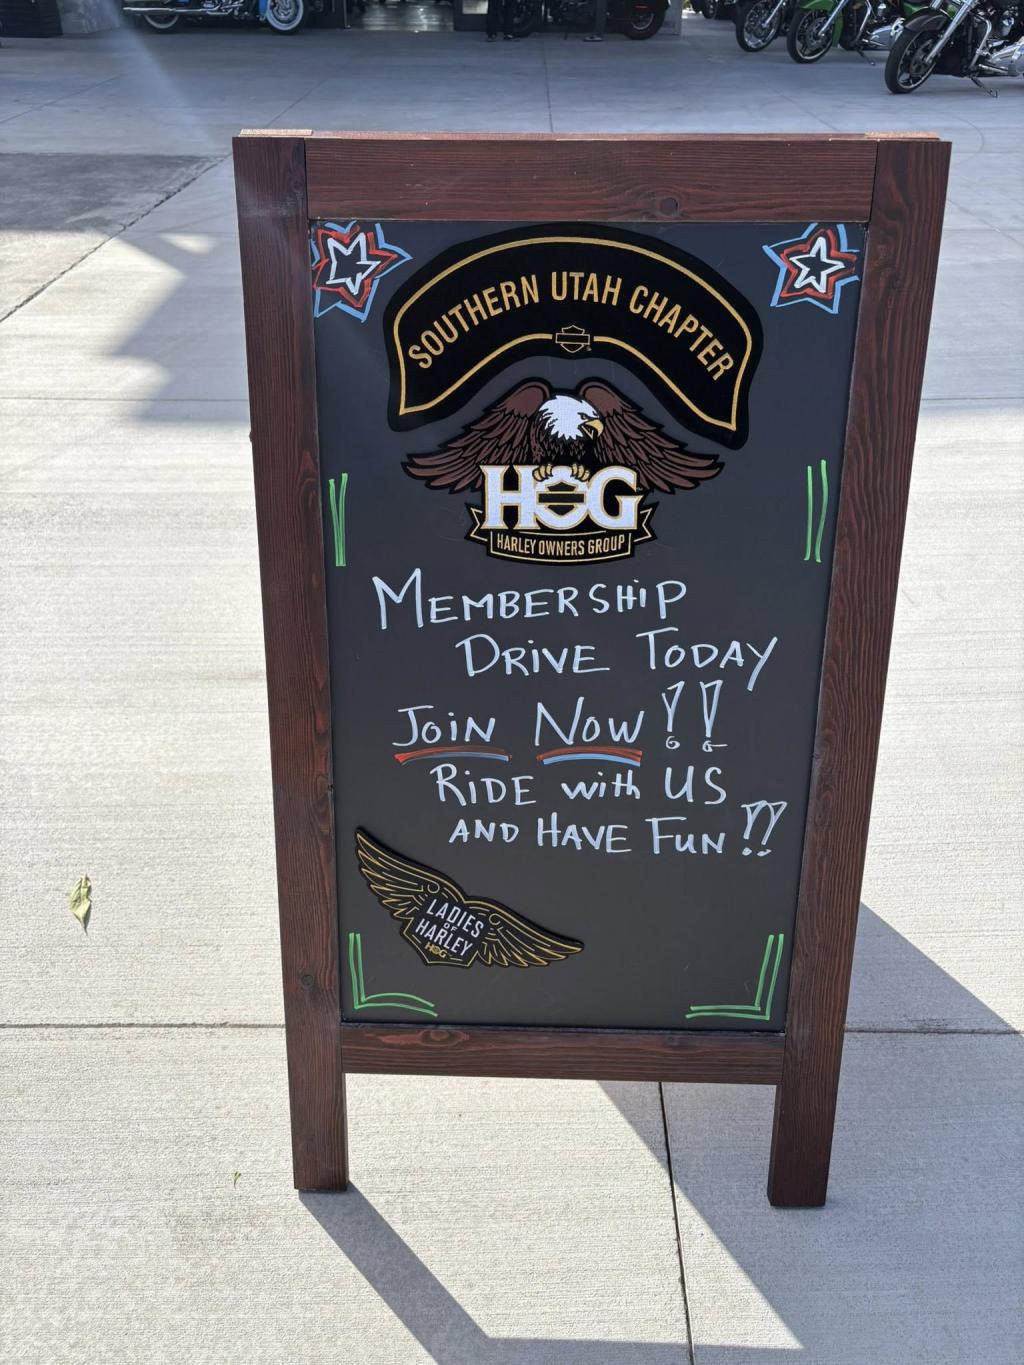 SOUTHERN UTAH CHAPTER
HOG
HARLEY OWNERS GROUP
MEMBERSHiP
DRiVE TODAY
JOiN NOW!!
RiDE with US
AND HAVE FUN!!
LADIES
OF
HARLEY
HOG